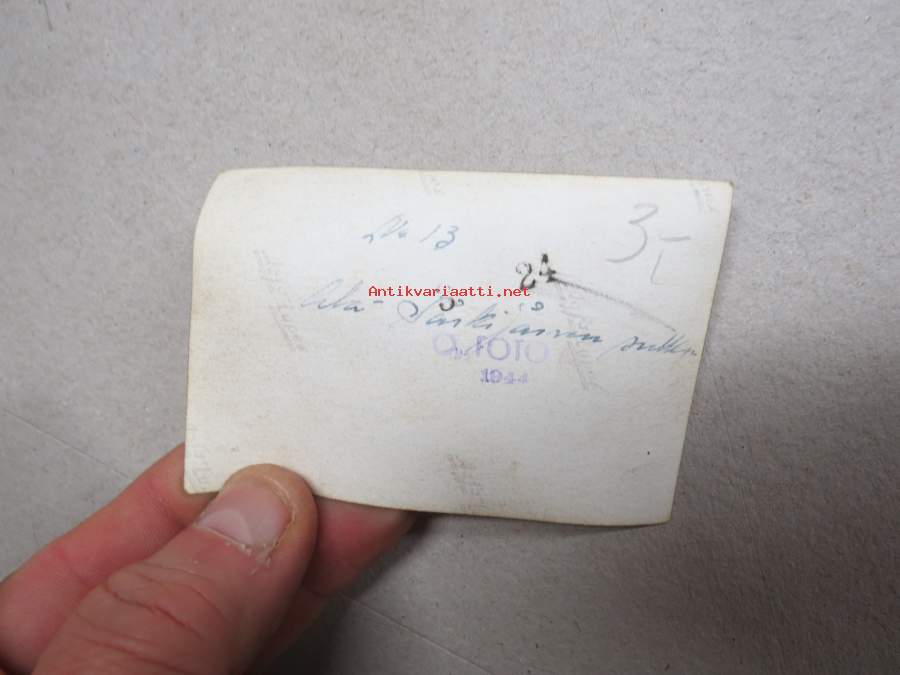 No 13
3,-
24
Antikvariaatti.net
Ala- Särkijärven
O. FOTO
1944